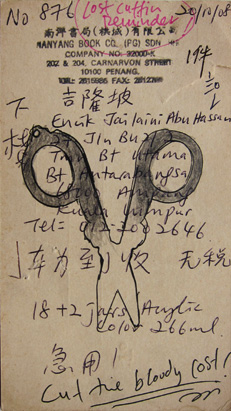 No 876 (Lost Cuttin Reminder) 20/10/08
南洋書局(檳城)有限公司
NANYANG BOOK CO. (PG) SDN
COMPANY NO: 92000-K
202 & 204, CARNARVON STREET
10100 PENANG.
TEL: 2615986 FAX:
下 吉隆坡
Encik Jailaini Abu Hassan
Jln
Tmn Bt Utama
Bt Antarabangsa
Kuala Lumpur
Tel: 012-208 2646
无税
18 + 2 jars Acrylic
Color 266ml
急用!
Cut the bloody cost!